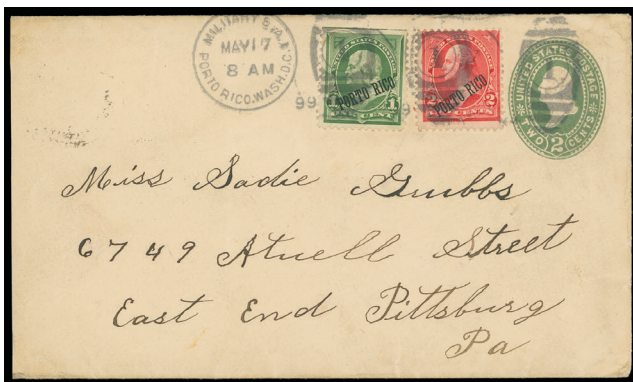 MILITARY STA. No. 1
MAY 17
8 AM
PORTO RICO. WASH. D.C.
99
PORTO RICO
1 1
CENT
PORTO RICO
2 2
CENTS
UNITED STATES POSTAGE
TWO 2 CENTS
Miss Sadie Grubbs
6749 Atwell Street
East End Pittsburg
Pa